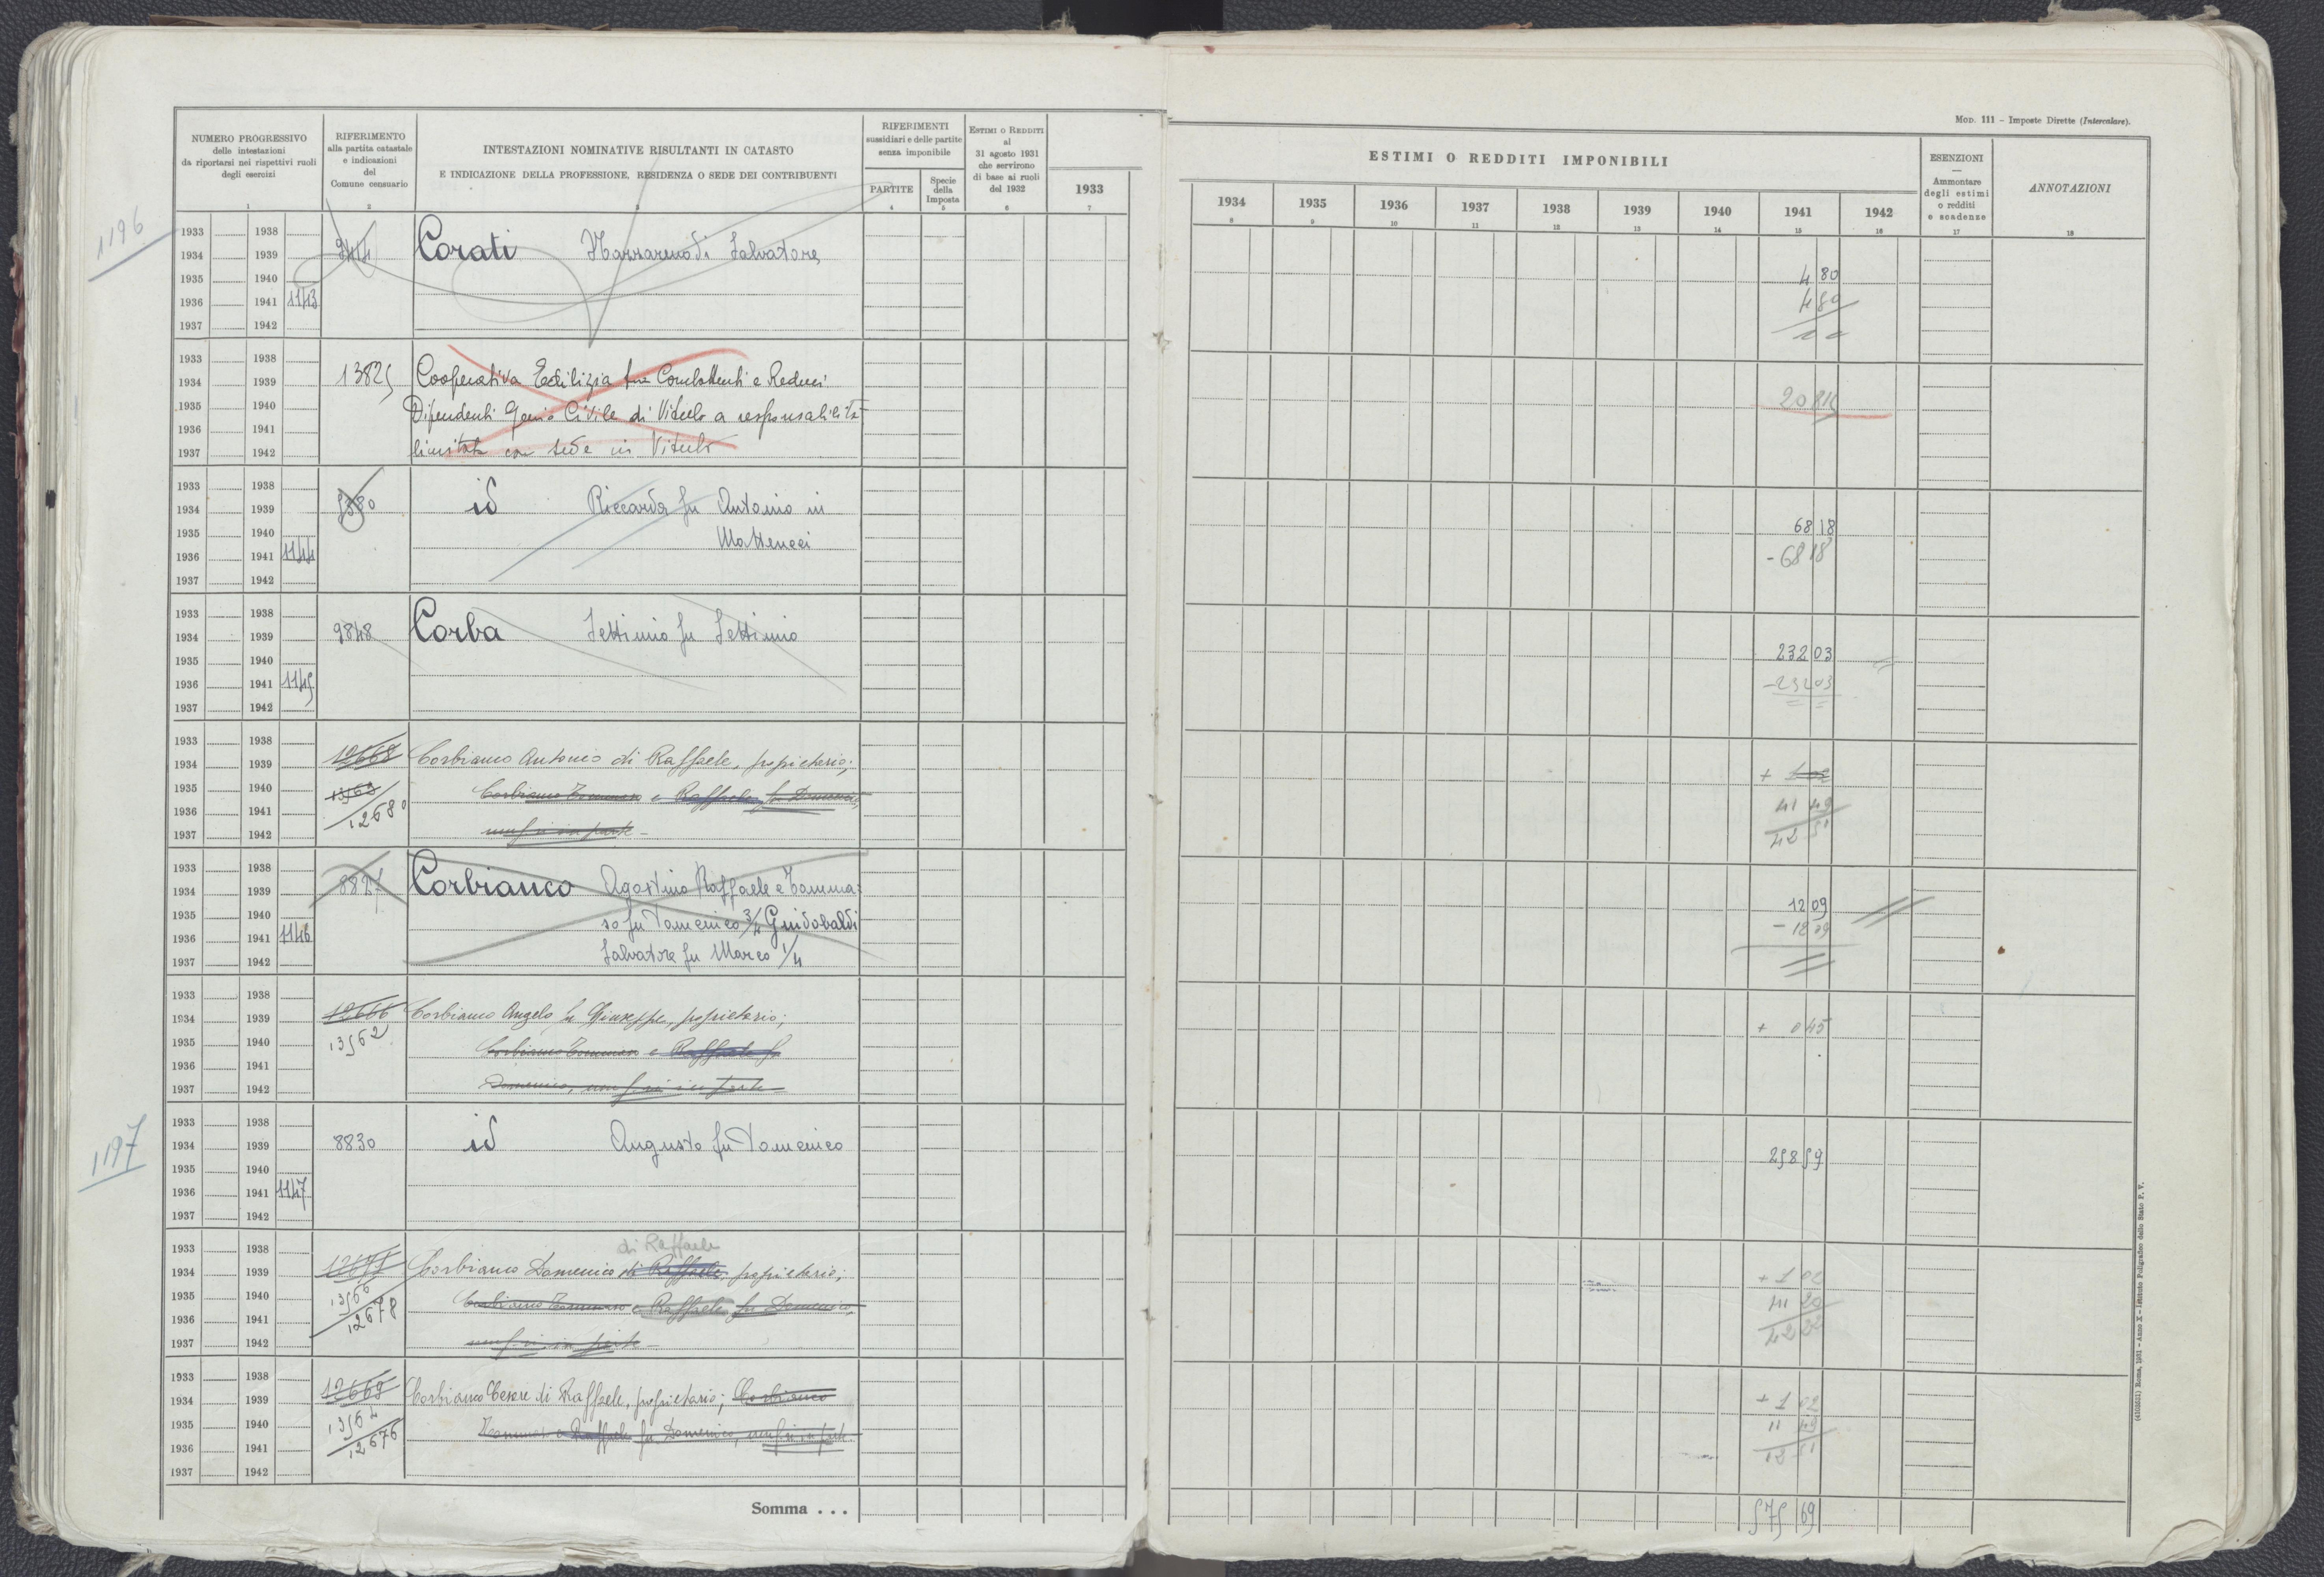 MOD. 111 – Imposte Dirette (Intercalare).
NUMERO PROGRESSIVO
delle intestazioni
da riportarsi nei rispettivi ruoli
degli esercizi
1
RIFERIMENTO
alla partita catastale
e indicazioni
del
Comune censuario
2
INTESTAZIONI NOMINATIVE RISULTANTI IN CATASTO
E INDICAZIONE DELLA PROFESSIONE, RESIDENZA O SEDE DEI CONTRIBUENTI
3
RIFERIMENTI
sussidiari e delle partite
senza imponibile
PARTITE
4
Specie
della
Imposta
5
ESTIMI O REDDITI
al
31 agosto 1931
che servirono
di base ai ruoli
del 1932
6
1933
7
ESTIMI O REDDITI IMPONIBILI
1934 1935 1936 1937 1938 1939 1940 1941 1942
8 9 10 11 12 13 14 15 16
ESENZIONI
—
Ammontare
degli estimi
o redditi
e scadenze
17
ANNOTAZIONI
18
1196
1933 1938
1934 1939 Corati Nazzareno di Salvatore
1935 1940 4 80
1936 1941 1143 4 80
1937 1942
1933 1938
1934 1939 13825 Cooperativa Edilizia fra Combattenti e Reduci
1935 1940 Dipendenti Genio Civile di Viterbo a responsabilità
1936 1941
1937 1942 limitata con sede in Viterbo
1933 1938
1934 1939 id Riccarda fu Antonio in
1935 1940 68 18
1936 1941 1144 Matteucci - 68 18
1937 1942
1933 1938
1934 1939 9848 Corba Settimio fu Settimio
1935 1940 232 03
1936 1941 1145 - 232 03
1937 1942
1933 1938
1934 1939 12668 Corbianco Antonio di Raffaele, proprietario;
1935 1940 13563 Corbianco Tommaso e Raffaele fu Domenico,
1936 1941 12680 41 49
1937 1942 usuf.ri in parte 42 51
1933 1938
1934 1939 8827 Corbianco Agostino Raffaele e Tomma-
1935 1940 so fu Domenico 3/4 Guidobaldi 12 09
1936 1941 1146 - 12 09
1937 1942 Salvatore fu Marco 1/4
1933 1938
1934 1939 12666 Corbianco Angelo fu Giuseppe, proprietario; + 0 45
1935 1940 13562 Corbianco Tommaso e Raffaele fu
1936 1941
1937 1942 Domenico, usuf.ri in parte
1197
1933 1938
1934 1939 8830 id Augusto fu Domenico
1935 1940 258 59
1936 1941 1147
1937 1942
di Raffaele
1933 1938
1934 1939 Corbianco Domenico di Raffaele, proprietario; + 1 02
1935 1940 13566 Corbianco Tommaso e Raffaele fu Domenico,
1936 1941 12678
1937 1942 usuf.ri in parte 42 22
1933 1938
1934 1939 12669 Corbianco Cesare di Raffaele, proprietario; Corbianco + 1 02
1935 1940 13564 Tommaso e Raffaele fu Domenico, usuf.ri in parte 11 49
1936 1941 12676 12 51
1937 1942
Somma . . . 575 69
(4103251) Roma, 1931 – Anno X – Istituto Poligrafico dello Stato P. V.